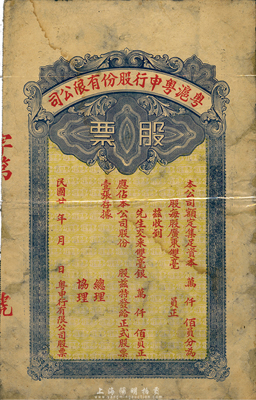 粤滬粤申行股份有限公司
股票
本公司額定集足資本 萬 仟 佰員分為
股每股廣東雙毫 員正
茲收到
先生交來雙毫銀 萬 仟 佰員正
應佔本公司股份 股茲特發給正式股票
壹張存據
總理
協理
民國廿 年 月 日粤申行有限公司股票
字第
號
上海陽明拍卖